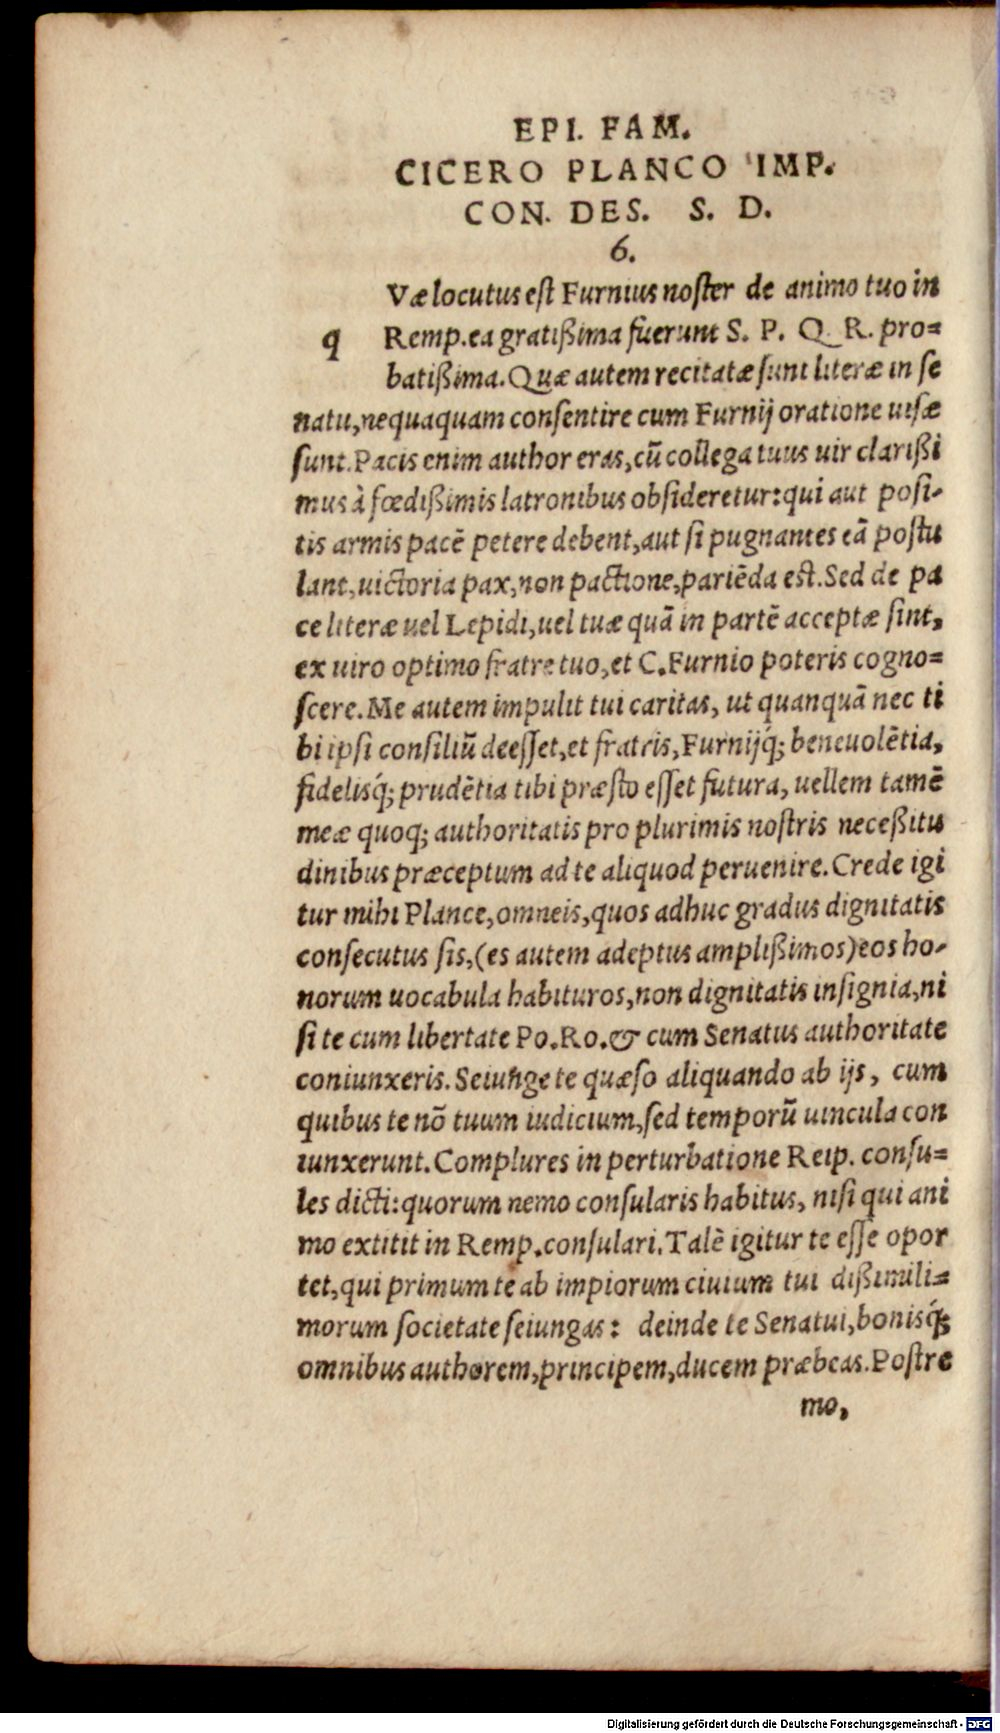 EPI. FAM.
CICERO PLANCO IMP.
CON. DES. S. D.
6.
Væ locutus est Furnius noster de animo tuo in
q Remp. ea gratißima fuerunt S. P. Q. R. pro=
batißima. Quæ autem recitatæ sunt literæ in se
natu, nequaquam consentire cum Furnij oratione uisæ
sunt. Pacis enim author eras, cũ collega tuus uir clarißi
mus à fœdißimis latronibus obsideretur: qui aut posi-
tis armis pacẽ petere debent, aut si pugnantes eã postu
lant, uictoria pax, non pactione, pariẽda est. Sed de pa
ce literæ uel Lepidi, uel tuæ quã in partẽ acceptæ sint,
ex uiro optimo fratre tuo, et C. Furnio poteris cogno=
scere. Me autem impulit tui caritas, ut quanquã nec ti
bi ipsi consiliũ deesset, et fratris, Furnijq́; beneuolẽtia,
fidelisq́; prudẽtia tibi præsto esset futura, uellem tamẽ
meæ quoq; authoritatis pro plurimis nostris neceßitu
dinibus præceptum ad te aliquod peruenire. Crede igi
tur mihi Plance, omneis, quos adhuc gradus dignitatis
consecutus sis, (es autem adeptus amplißimos) eos ho-
norum uocabula habituros, non dignitatis insignia, ni
si te cum libertate Po. Ro. & cum Senatus authoritate
coniunxeris. Seiunge te quæso aliquando ab ijs, cum
quibus te nõ tuum iudicium, sed temporũ uincula con
iunxerunt. Complures in perturbatione Reip. consu=
les dicti: quorum nemo consularis habitus, nisi qui ani
mo extitit in Remp. consulari. Talẽ igitur te esse opor
tet, qui primum te ab impiorum ciuium tui dißimili=
morum societate seiungas: deinde te Senatui, bonisq́;
omnibus authorem, principem, ducem præbeas. Postre
mo,
Digitalisierung gefördert durch die Deutsche Forschungsgemeinschaft - DFG